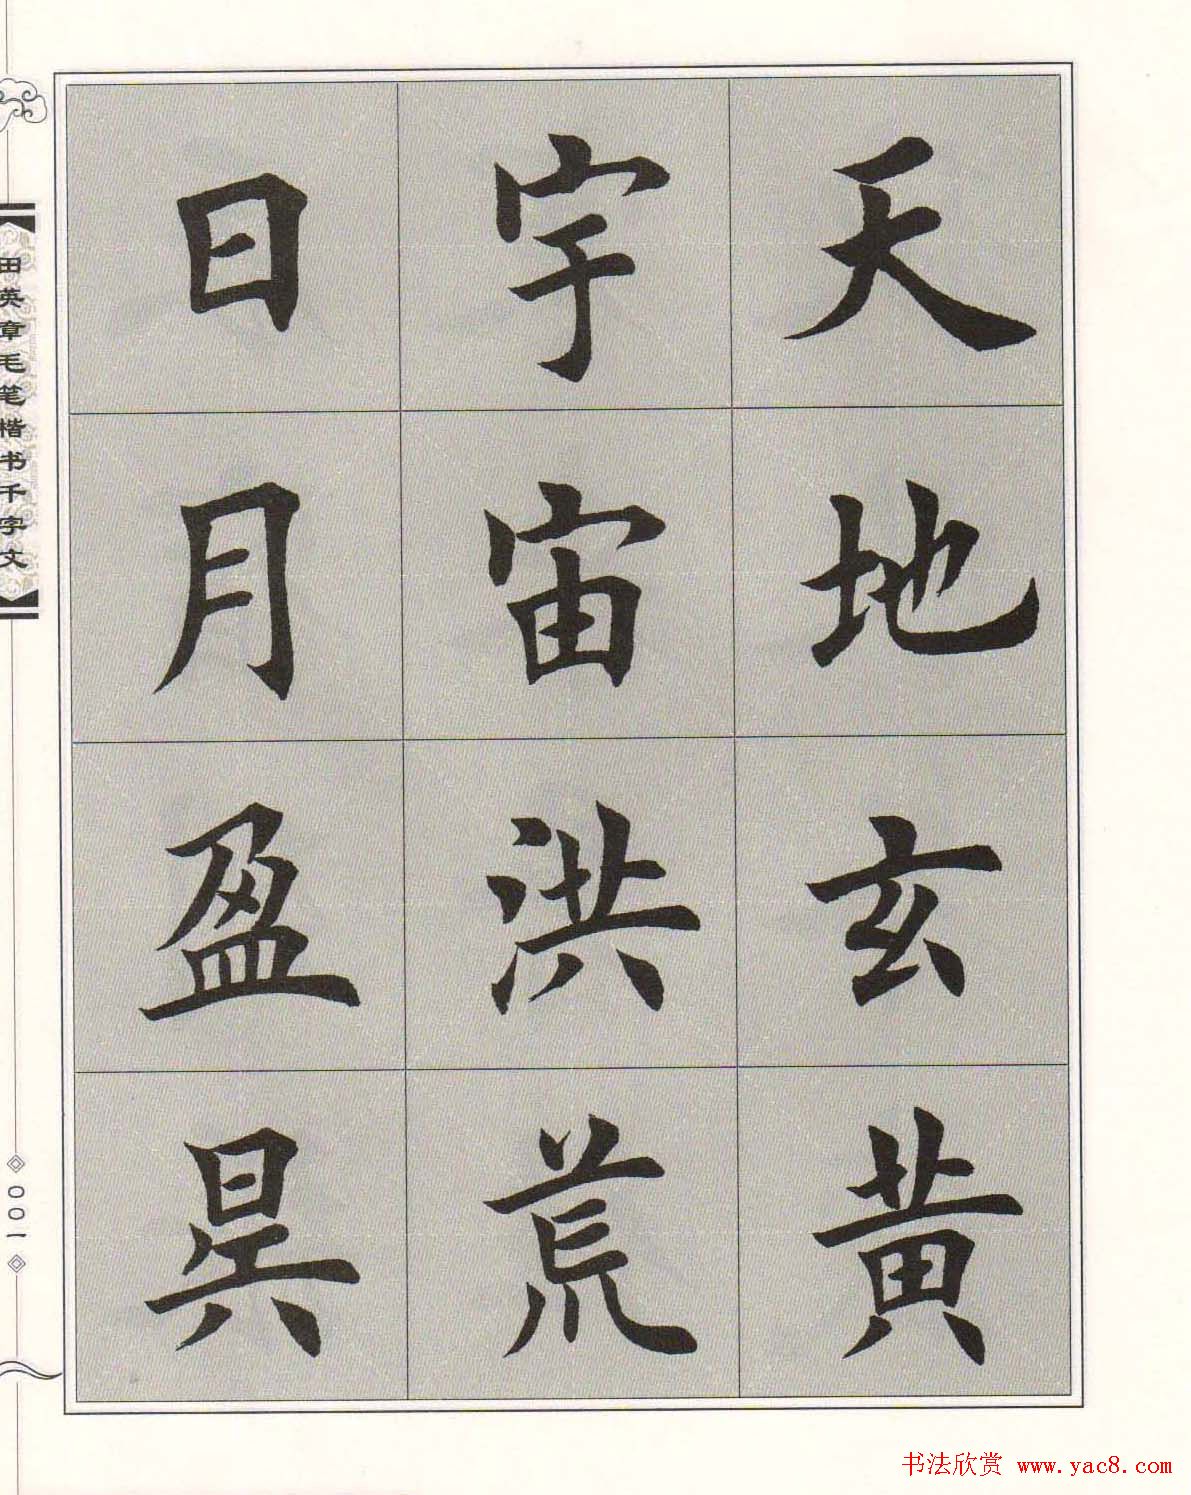 天地玄黄
宇宙洪荒
日月盈昃
田英章毛笔楷书千字文
001
书法欣赏 www.yac8.com